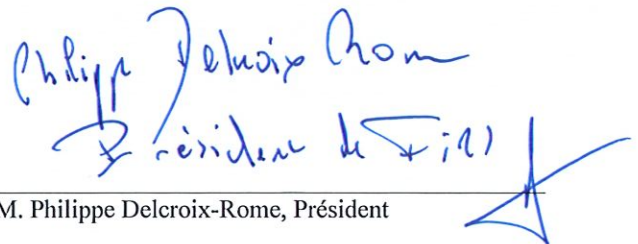 Philippe Delcroix Rome
Président de
M. Philippe Delcroix-Rome, Président